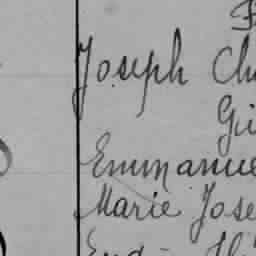 Joseph Ch
Gi
Emmanue
Marie Jose